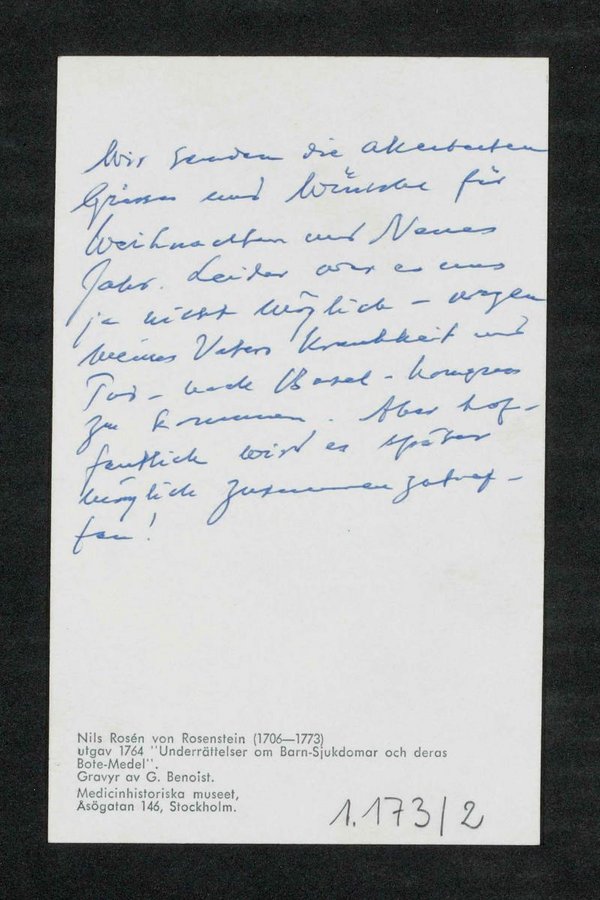 Wir senden die allerbesten
Grüsse und Wünsche für
Weihnachten und Neues
Jahr. Leider war es uns
ja nicht möglich – wegen
meines Vaters Krankheit und
Tod – nach Basel - kongress
zu kommen. Aber hof-
fentlich wird es später
möglich zusammenzutref-
fen!
Nils Rosén von Rosenstein (1706—1773)
utgav 1764 "Underrättelser om Barn-Sjukdomar och deras
Bote-Medel".
Gravyr av G. Benoist.
Medicinhistoriska museet,
Åsögatan 146, Stockholm.
1.173/2